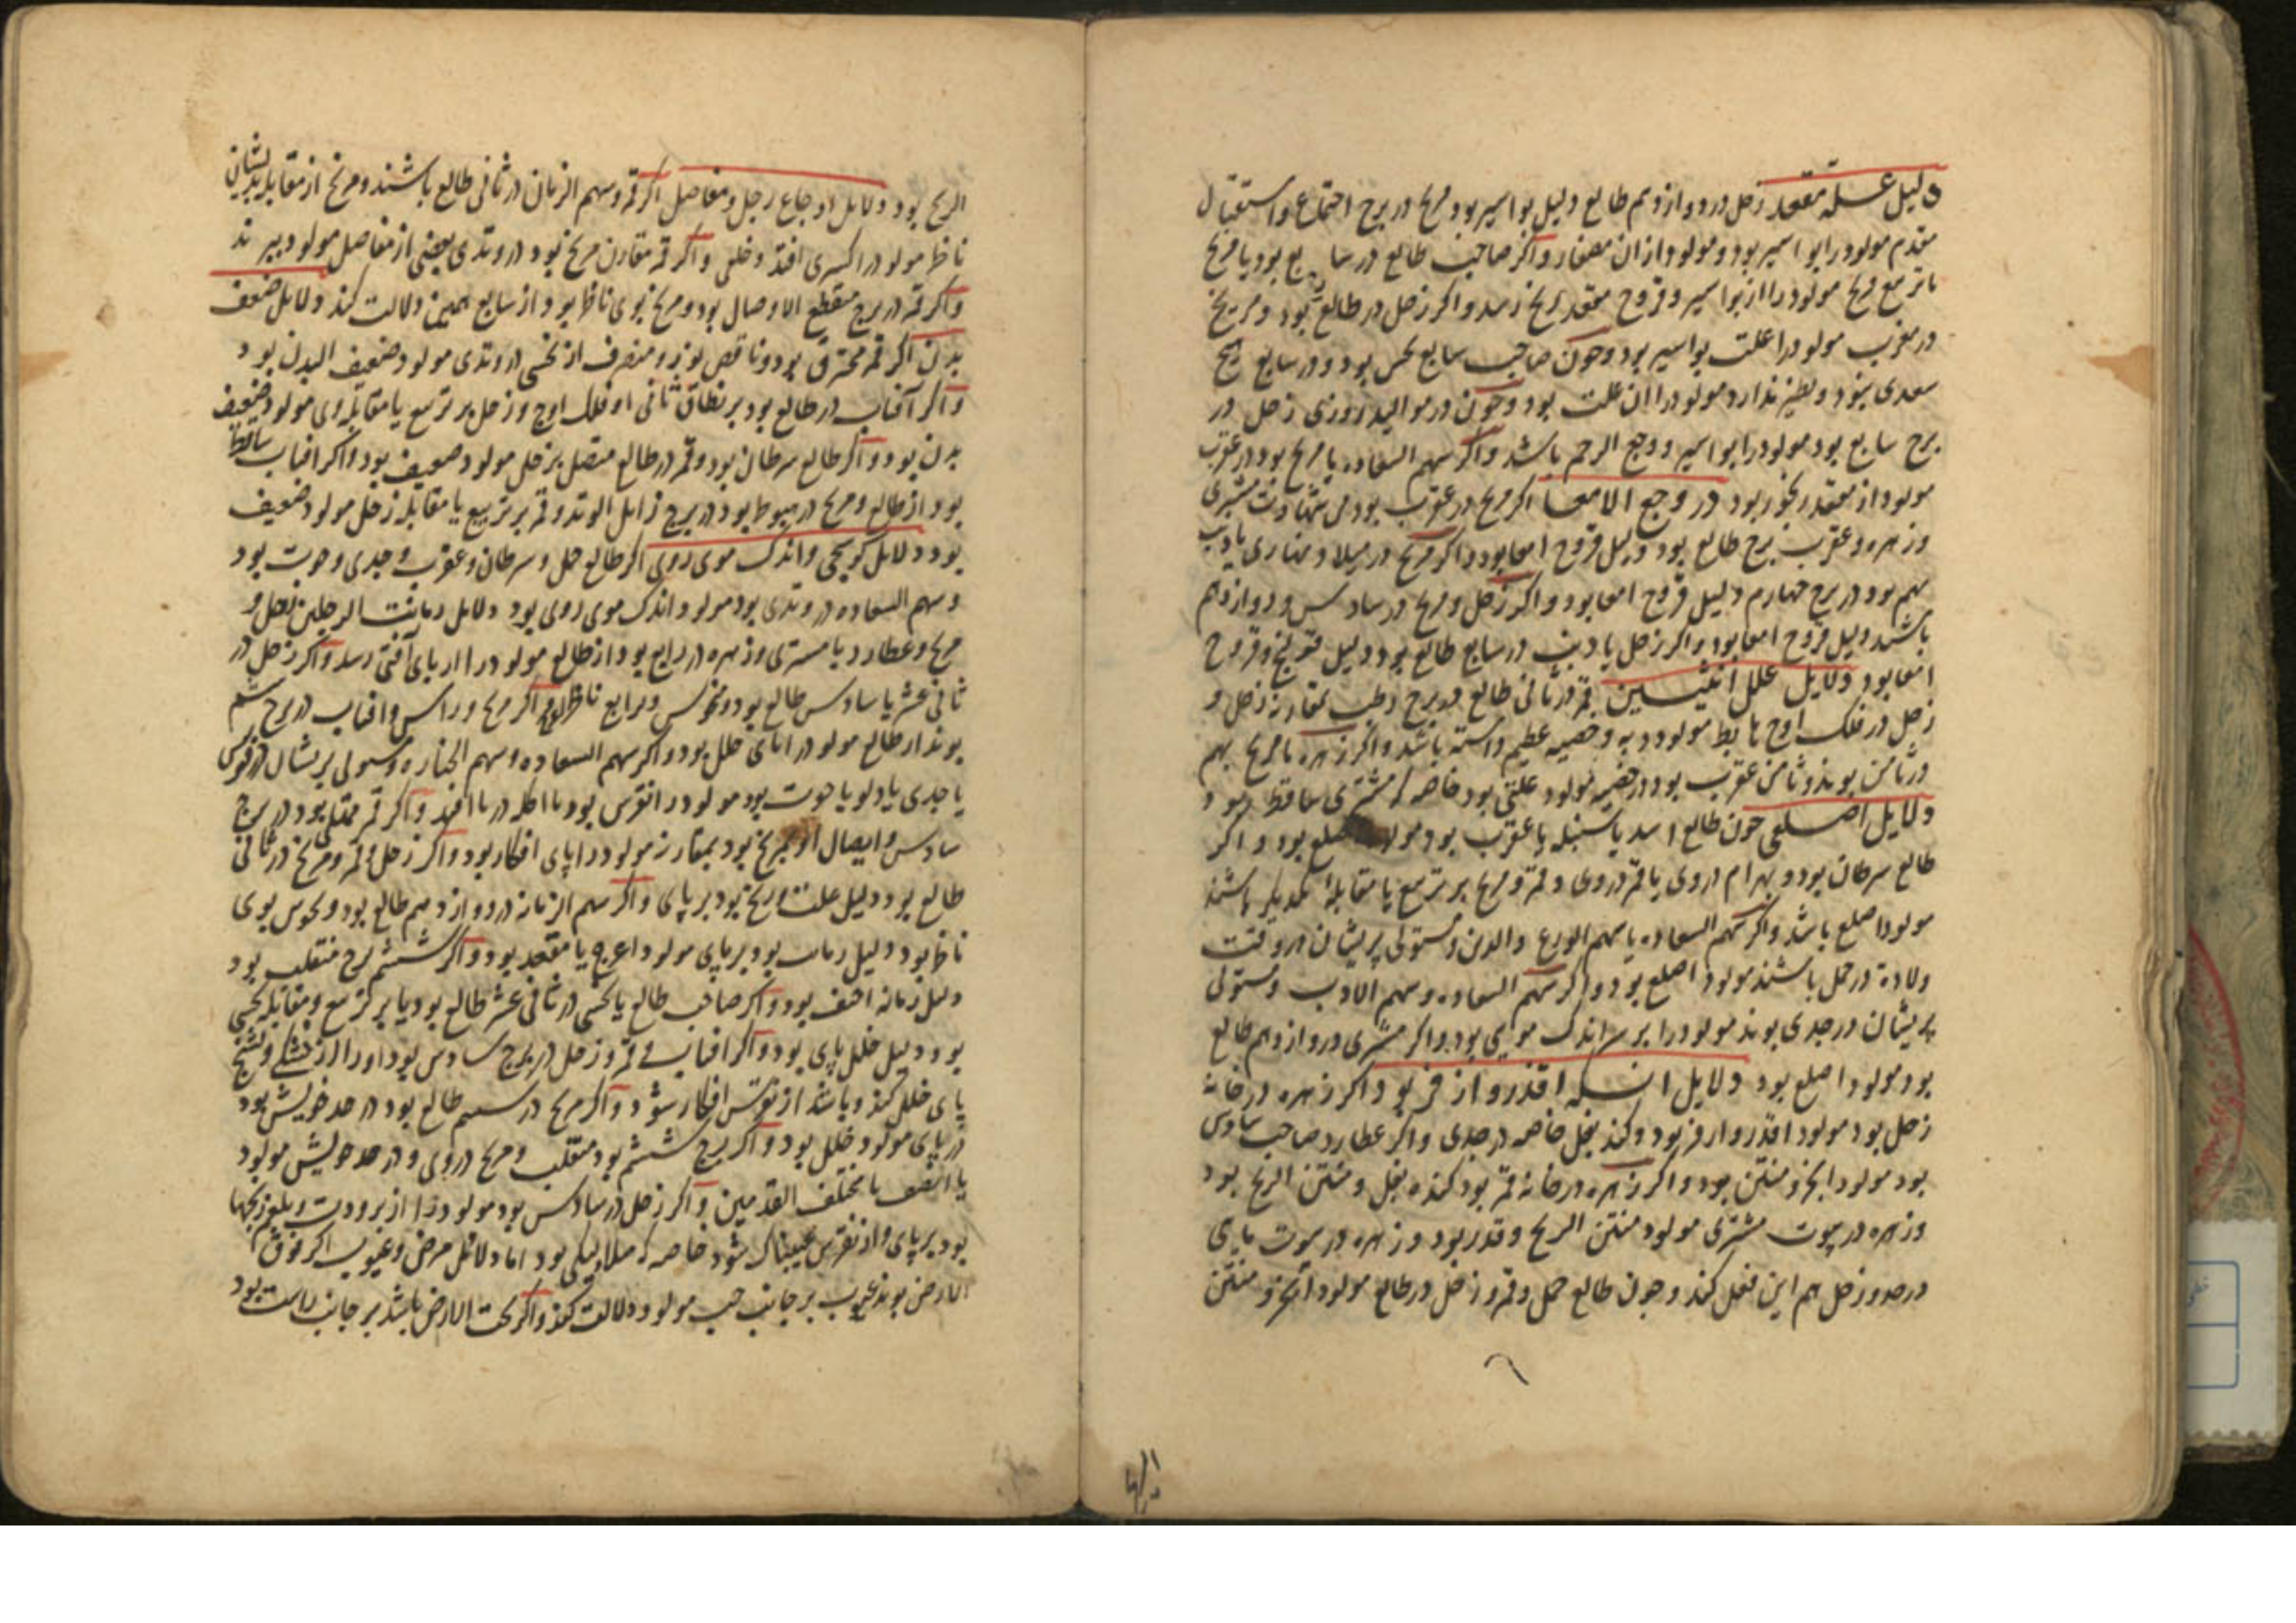 دلیل علة مقعد زحل در دوازدهم طالع دلیل بواسیر بود و مریخ در برج اجتماع و استقبال
مقدم مولود را بواسیر بود و مولود ازان و اکر صاحب طالع در سابع بود یا مریخ
با تربیع مریخ مولود را از بواسیر و قروح مقعد رنج رسد و اکر زحل در طالع بود و مریخ
در مغرب مولود را علت بواسیر بود و چون صاحب سابع نحس بود و در سابع هیچ
سعدی نبود و نظیر ندارد مولود را ان علت بود و چون در موالید روزی زحل در
برج سابع بود مولود را بواسیر و وجع الرحم باشد و اکر سهم السعاده با مریخ بود در عقرب
مولود از مقعد رنجور بود در وجع الامعا اکر مریخ در عقرب بود بی شهادت مشتری
و زهره و عقرب برج طالع بود دلیل قروح امعا بود و اکر مریخ در میلاد نهاری با ذنب
بهم بود در برج چهارم دلیل قروح امعا بود و اکر زحل و مریخ در سادس و دوازدهم
باشند دلیل قروح امعا بود و اکر زحل یا ذنب در سابع طالع بود دلیل قولنج و قروح
امعا بود دلایل علل انثیین قمر در ثانی طالع در برج رطب بمقارنه زحل و
زحل در فلک اوج هابط مولود دبه و خصیه عظیم داشته باشد و اکر زهره با مریخ بهم
در ثامن بوند و ثامن عقرب بود در خصیه مولود علتی بود خاصه که مشتری ساقط بود
دلایل اصلعی چون طالع اسد یا سنبله یا عقرب بود مولود اصلع بود و اکر
طالع سرطان بود و بهرام در وی یا قمر در وی و قمر و مریخ بر تربیع یا مقابله یکدیکر باشند
مولود اصلع باشد و اکر سهم السعاده یا سهم الورع والدین و مستولی بریشان هر وقت
ولادة در حمل باشند مولود اصلع بود و اکر سهم السعاده و سهم الادب و مستولی
بریشان در جدی بوند مولود را بر سر اندک مویی بود و اکر مشتری در دوازدهم طالع
بود مولود اصلع بود دلایل انکه اقذر و ازفر بود اکر زهره در خانه
زحل بود مولود اقذر و ازفر بود و کند بغل خاصه در جدی و اکر عطارد صاحب سادس
بود مولود ابخر و منتن بود و اکر زهره در خانه قمر بود کنده بغل و منتن الریح بود
و زهره در بیوت مشتری مولود منتن الریح و قذر بود و زهره در بیوت یا در
در حدود زحل هم این فعل کند و چون طالع حمل و قمر و زحل در طالع مولود ابخر و منتن
الریح بود دلایل اوجاع رجل و مفاصل اکر قمر و سهم الزمان در ثانی طالع باشند و مریخ از مقابله بدیشان
ناظر مولود را کسری افتد و خلعی و اکر قمر مقارن مریخ بود در وتدی بعضی از مفاصل مولود ببرند
و اکر قمر در برج مقطع الاوصال بود و مریخ بوی ناظر بود از سابع همین دلالت کند دلایل ضعف
بدن اکر قمر محترق بود و ناقص نور و منصرف از نحسی در وتدی مولود ضعیف البدن بود
و اکر آفتاب در طالع بود بر نطاق ثانی از فلک اوج و زحل بر تربیع یا مقابله وی مولود ضعیف
بدن بود و اکر طالع سرطان بود و قمر در طالع متصل بزحل مولود ضعیف بود و اکر افتاب ساقط
بود از طالع و مریخ در هبوط بود در برج زایل الوتد و قمر بر تربیع یا مقابله زحل مولود ضعیف
بود دلایل کوسجی و اندک موی روی اکر طالع حمل و سرطان و عقرب و جدی و حوت بود
و سهم السعاده در وتدی بود مولود اندک موی روی بود دلایل زمانت الرجلین زحل و
مریخ و عطارد با مشتری و زهره در رابع بود از طالع مولود را از پای آفتی رسد و اکر زحل در
ثانی عشر یا سادس طالع بود و نحوس و برابع ناظر بود اکر مریخ و راس و افتاب در برج ششم
بوند از طالع مولود را پای خلل بود و اکر سهم السعاده و سهم الجنازه و مستولی بریشان در قوس
یا جدی یا دلو یا حوت بود مولود را نقرس بود یا اکله در پا افتد و اکر قمر ممتلی بود در برج
سادس و ایصال او بمریخ بود بمقارنه مولود را پای افکار بود و اکر زحل و قمر و مریخ در ثانی
طالع بود دلیل علت و رنج بود بر پای و اکر سهم الزمانه در دوازدهم طالع بود و نحوس بوی
ناظر بود دلیل زمانت بود بر پای مولود اعرج یا مقعد بود و اکر ششم برج منقلب بود
دلیل زمانه احنف بود و اکر صاحب طالع یا نحسی در ثانی عشر طالع بود یا بر تربیع و مقابله نحسی
بود دلیل خلل پای بود و اکر افتاب و قمر و زحل در برج سادس بود او را از خشکی و تشنج
پای خلل کند و باشد از نقرس افکار شود و اکر مریخ در ششم طالع بود در حد خویش بود
در پای مولود خلل بود و اکر برج ششم بود منقلب و مریخ در وی و در حد خویش مولود
یا احنف یا مختلف القدمین و اکر زحل در سادس بود مولود را از برودت و بلغم رنجها
بود بر پای و از نقرس عیبناک شود خاصه که میلاد لیلی بود اما دلائل مرض و عیوب اکر فوق
الارض بوند عیوب بر جانب چپ مولود دلالت کند و اکر تحت الارض باشد بر جانب راست بود